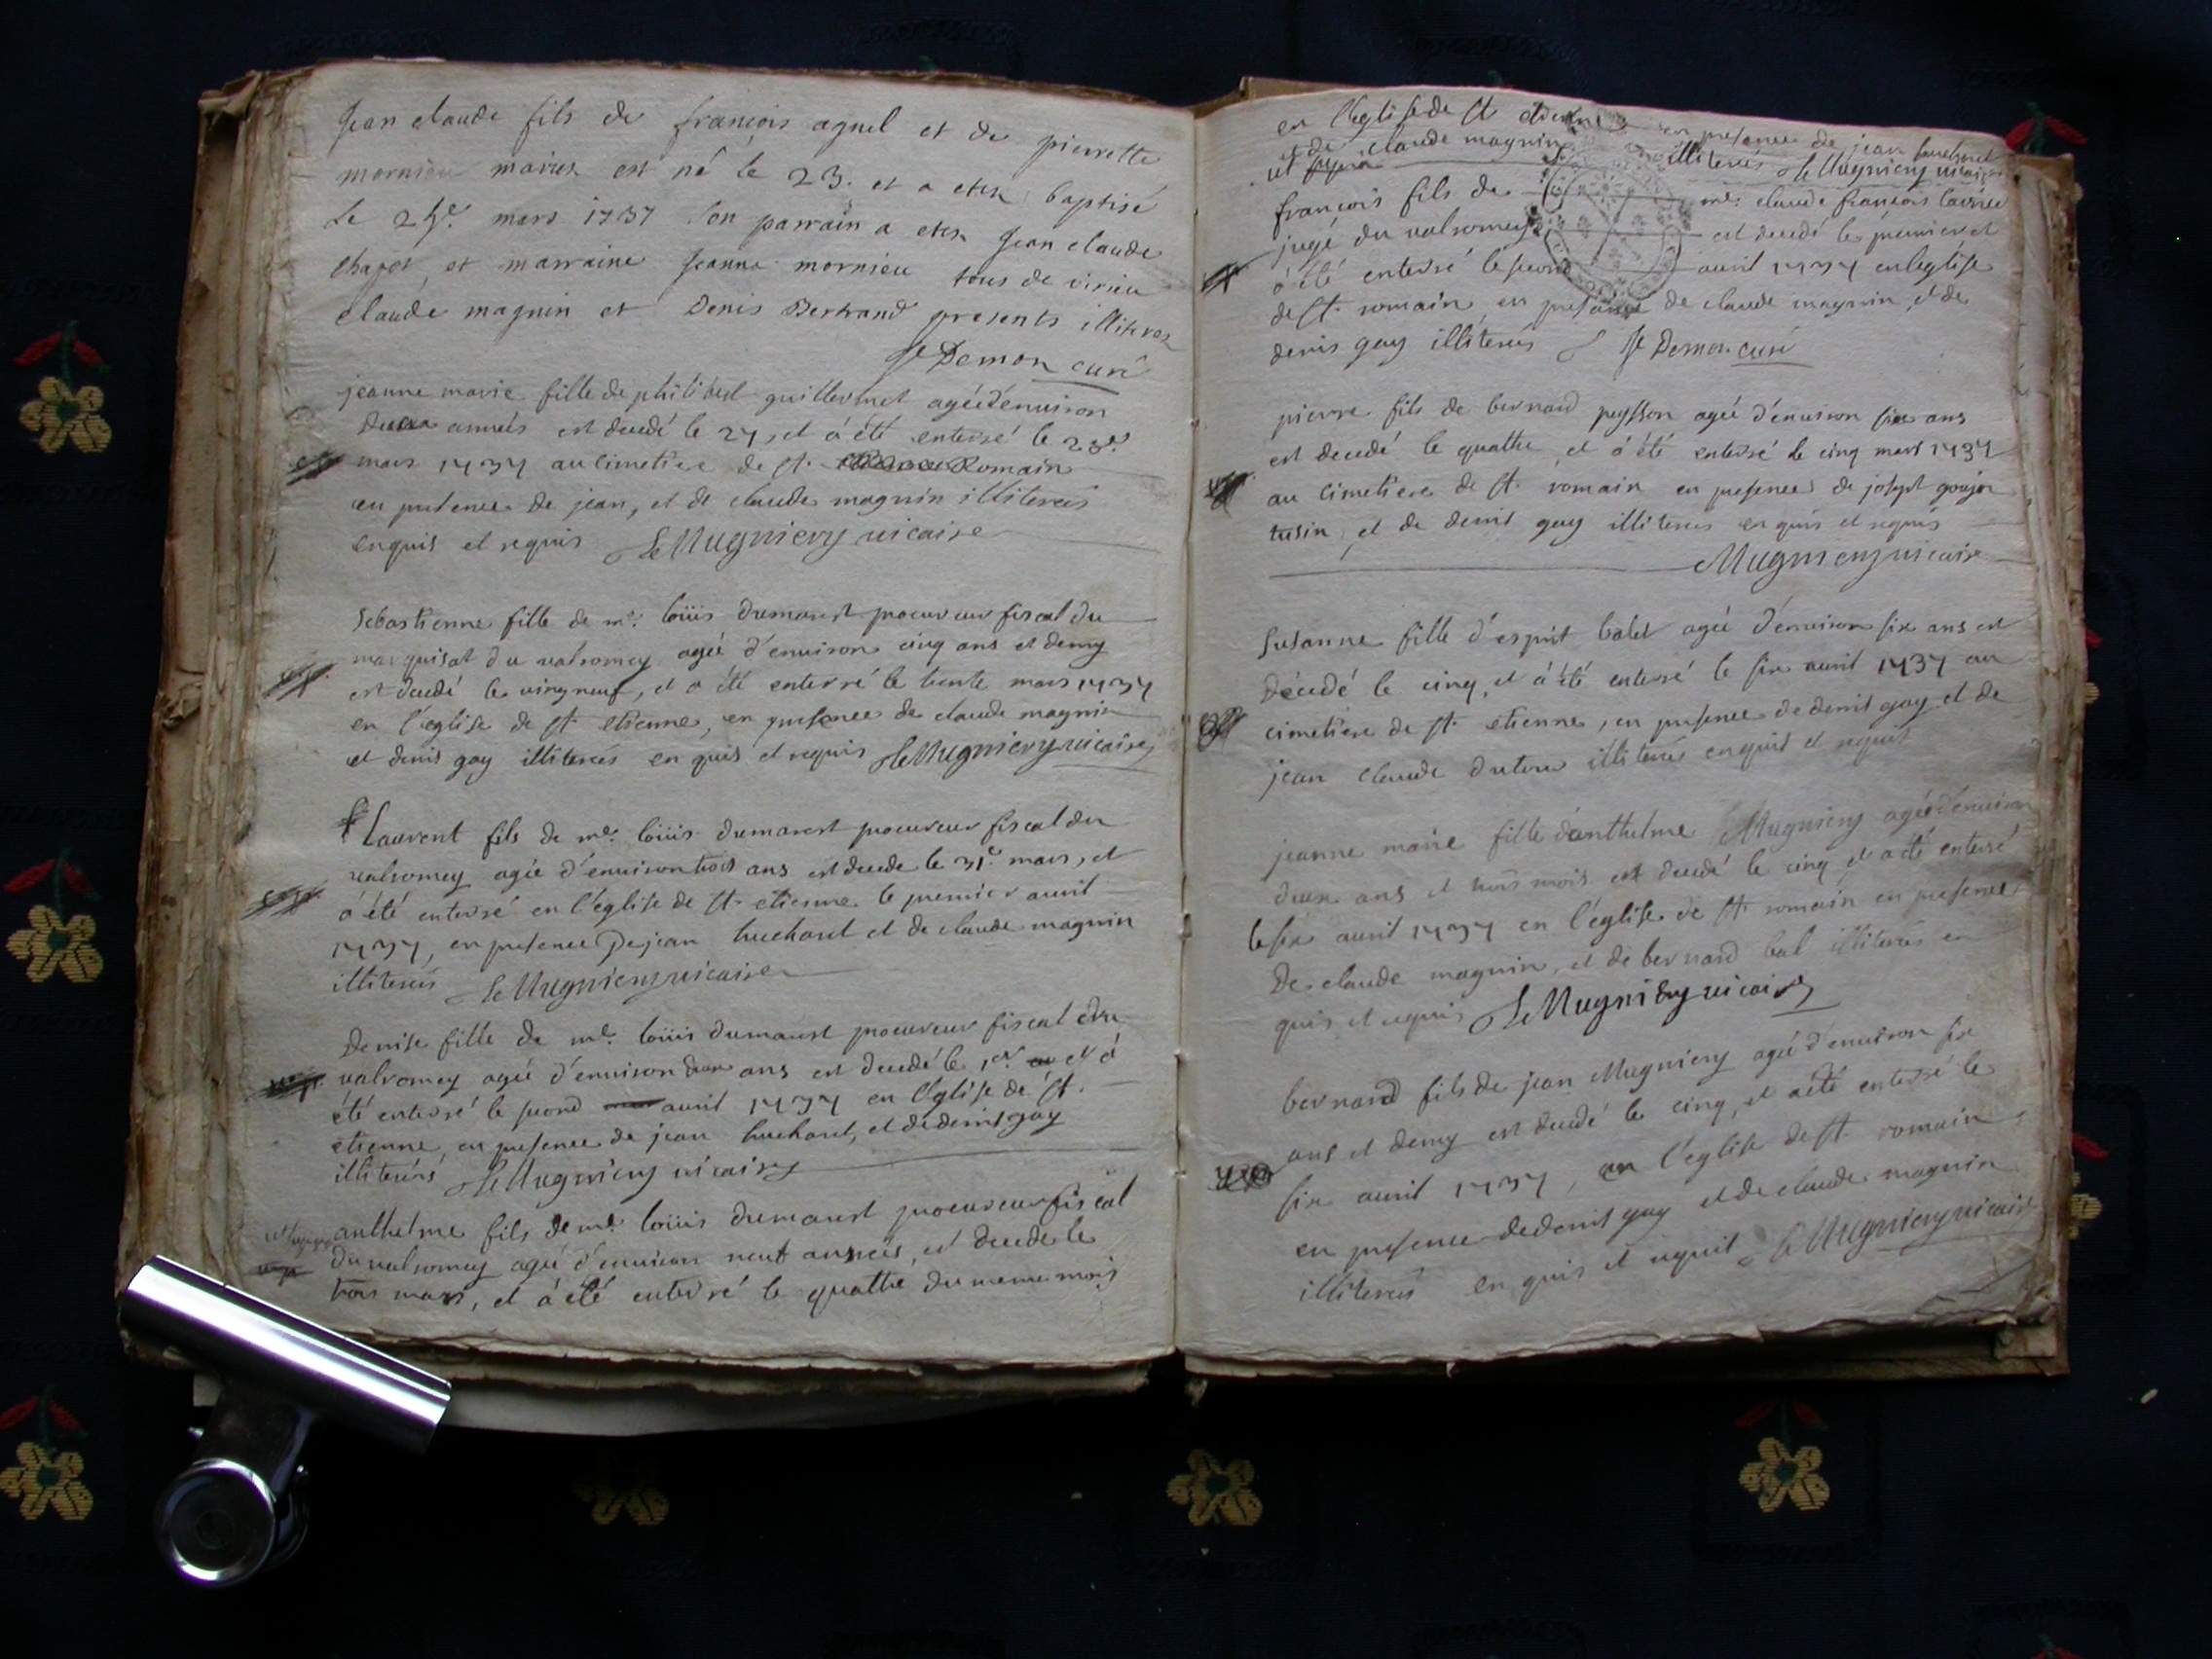 Jean claude fils de françois agnel et de pierrette
mornieu mariez est né le 23. et a eten baptisé
le 24e. mars 1737 son parrain a eten Jean claude
chapot et marraine Jeanne mornieu tous de virieu
claude magnin et Denis Bertrand presents illiterez
Demon curé
jeanne marie fille de philibert guillermet agée d'enuiron
deux années est decedé le 27, et á été enterré le 28e.
mars 1737 au cimetiere de St. Romain
en presence de jean, et de claude magnin illiterés
enquis et requis Mugniery uicaire
Sebastienne fille de me. loüis dumarest procureur fiscal du
marquisat du valromey agée d'enuiron cinq ans et demy
est decedé le vingneuf, et a été enterré le trente mars 1737
en l'eglise de St. etienne, en presence de claude magnin
et denis gay illiterés en quis et requis Mugniery uicaire
Laurent fils de me. loüis dumarest procureur fiscal du
valromey agée d'enuiron trois ans est decede le 31e. mars, et
á été enterré en l'église de St. etienne le premier auril
1737, en presence De jean huchard et de claude magnin
illiterés Mugniery uicaire
Denise fille de me. loüis dumarest procureur fiscal du
valromey agée d'enuiron deux ans est decedé le 1er et á
été enterré le second auril 1737 en l'eglise de St.
etienne, en presence de jean huchard, et de denis gay
illiterés Mugniery uicaire
anthelme fils de me. loüis dumarest procureur fiscal
du valromey agée d'enuiron neuf années, est decede le
trois mars, et á été enterré le quattre du meme mois
en l'eglise de St etienne en presence de jean
et de claude magnin illiterés Mugniery uicaire
françois fils de me. claude françois
jugé du valromey est decedé le premier et
á été enterré le second auril 1737 en l'eglise
de St. romain en presence de claude magnin et de
denis gay illiterés Demon curé
pierre fils de bernard peysson agée d'enuiron six ans
est decedé le quattre et á été enterré le cinq mars 1737
au cimetiere de St. romain en presence de joseph goujon
tusin, et de denis gay illiterés en quis et requis
Mugniery uicaire
Susanne fille d'esprit balet agée d'enuiron six ans est
décedé le cinq, et á été enterré le six auril 1737 au
cimetiere de St. etienne, en presence de denis gay et de
jean claude illiterés enquis et requis
jeanne marie fille d'anthelme Mugniery agée d'enuiron
deux ans et trois mois est decedé le cinq et a été enterré
le six auril 1737 en l'église de St. romain en presence
De claude magnin, et de bernard bal illiterés en
quis et requis Mugniery uicaire
bernard fils de jean Mugniery agée d'enuiron six
ans et demy est decedé le cinq, et a été enterré le
six auril 1737, en l'église de St. romain
en presence de denis gay et de claude magnin
illiterés en quis et requis Mugniery uicaire